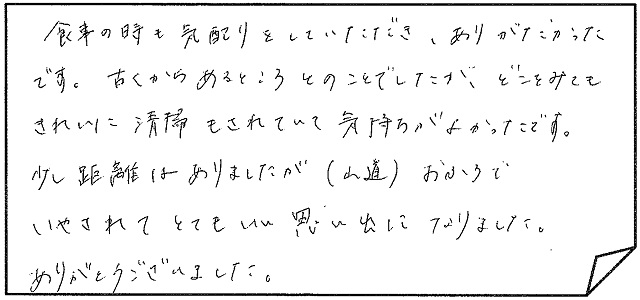 食事の時も気配りをしていただき、ありがたかった
です。古くからあるところとのことでしたが、どこをみても
きれいに清掃もされていて気持ちがよかったです。
少し距離はありましたが(山道)おふろで
いやされてとてもいい思い出になりました。
ありがとうございました。